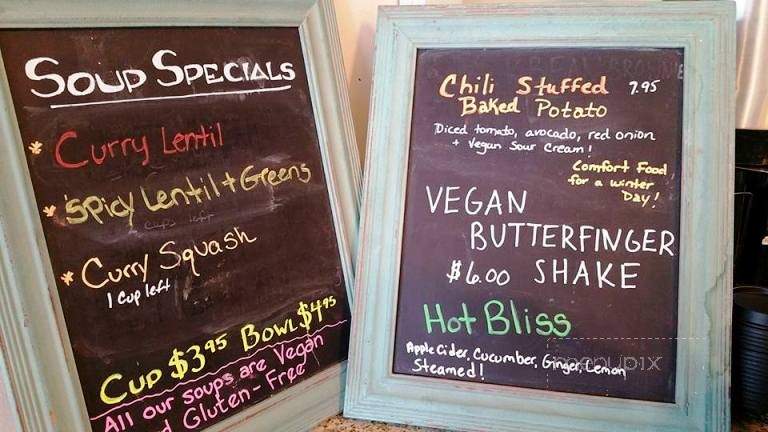 SOUP SPECIALS
* Curry Lentil
* Spicy Lentil + Greens
* Curry Squash
1 Cup left
CUP $3.95 BOWL $4.95
All our soups are Vegan
Gluten-Free
Chili Stuffed 7.95
Baked Potato
Diced tomato, avocado, red onion
+ Vegan Sour Cream!
Comfort Food
for a winter
Day!
VEGAN
BUTTERFINGER
$6.00 SHAKE
Hot Bliss
Apple Cider, Cucumber, Ginger, Lemon
Steamed!
menupix